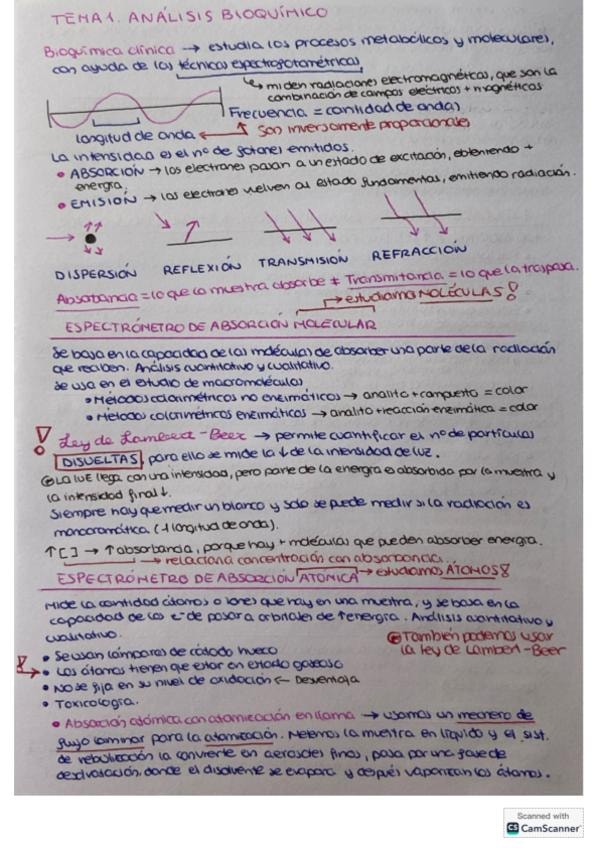 TEMA 1. ANÁLISIS BIOQUÍMICO
Bioquímica clínica → estudia los procesos metabólicos y moleculares,
con ayuda de las técnicas espectrofotométricas
↳ miden radiaciones electromagnéticas, que son la
combinación de campos eléctricos + magnéticos
Frecuencia = cantidad de ondas
longitud de onda
son inversamente proporcionales
La intensidad es el nº de fotones emitidos.
• ABSORCIÓN → los electrones pasan a un estado de excitación, obteniendo +
energía.
• EMISIÓN → los electrones vuelven al estado fundamental, emitiendo radiación.
DISPERSIÓN REFLEXIÓN TRANSMISIÓN REFRACCIÓN
Absorbancia = lo que la muestra absorbe ≠ Transmitancia = lo que la traspasa.
→ estudiamos MOLÉCULAS!
ESPECTRÓMETRO DE ABSORCIÓN MOLECULAR
Se basa en la capacidad de las moléculas de absorber una parte de la radiación
que reciben. Análisis cuantitativo y cualitativo.
Se usa en el estudio de macromoléculas
• Métodos colorimétricos no enzimáticos → analito + compuesto = color
• Métodos colorimétricos enzimáticos → analito + reacción enzimática = color
! Ley de Lambert-Beer → permite cuantificar el nº de partículas
DISUELTAS, para ello se mide la ↓ de la intensidad de luz.
La luz llega con una intensidad, pero parte de la energía es absorbida por la muestra y
la intensidad final ↓.
Siempre hay que medir un blanco y solo se puede medir si la radiación es
monocromática (1 longitud de onda).
↑[ ] → ↑absorbancia, porque hay + moléculas que pueden absorber energía.
→ relaciona concentración con absorbancia.
ESPECTRÓMETRO DE ABSORCIÓN ATÓMICA → estudiamos ÁTOMOS!
Mide la cantidad átomos o iones que hay en una muestra, y se basa en la
capacidad de los e⁻ de pasar a orbitales de ↑energía. Análisis cuantitativo y
cualitativo.
También podemos usar
la ley de Lambert-Beer
• Se usan lámparas de cátodo hueco
• Los átomos tienen que estar en estado gaseoso
• No se fija en su nivel de oxidación ← Desventaja
• Toxicología.
• Absorción atómica con atomización en llama → usamos un mechero de
flujo laminar para la atomización. Metemos la muestra en líquido y el sist.
de nebulización la convierte en aerosoles finos, pasa por una fase de
desolvatación, donde el disolvente se evapora y después vaporizan los átomos.
Scanned with
CS CamScanner